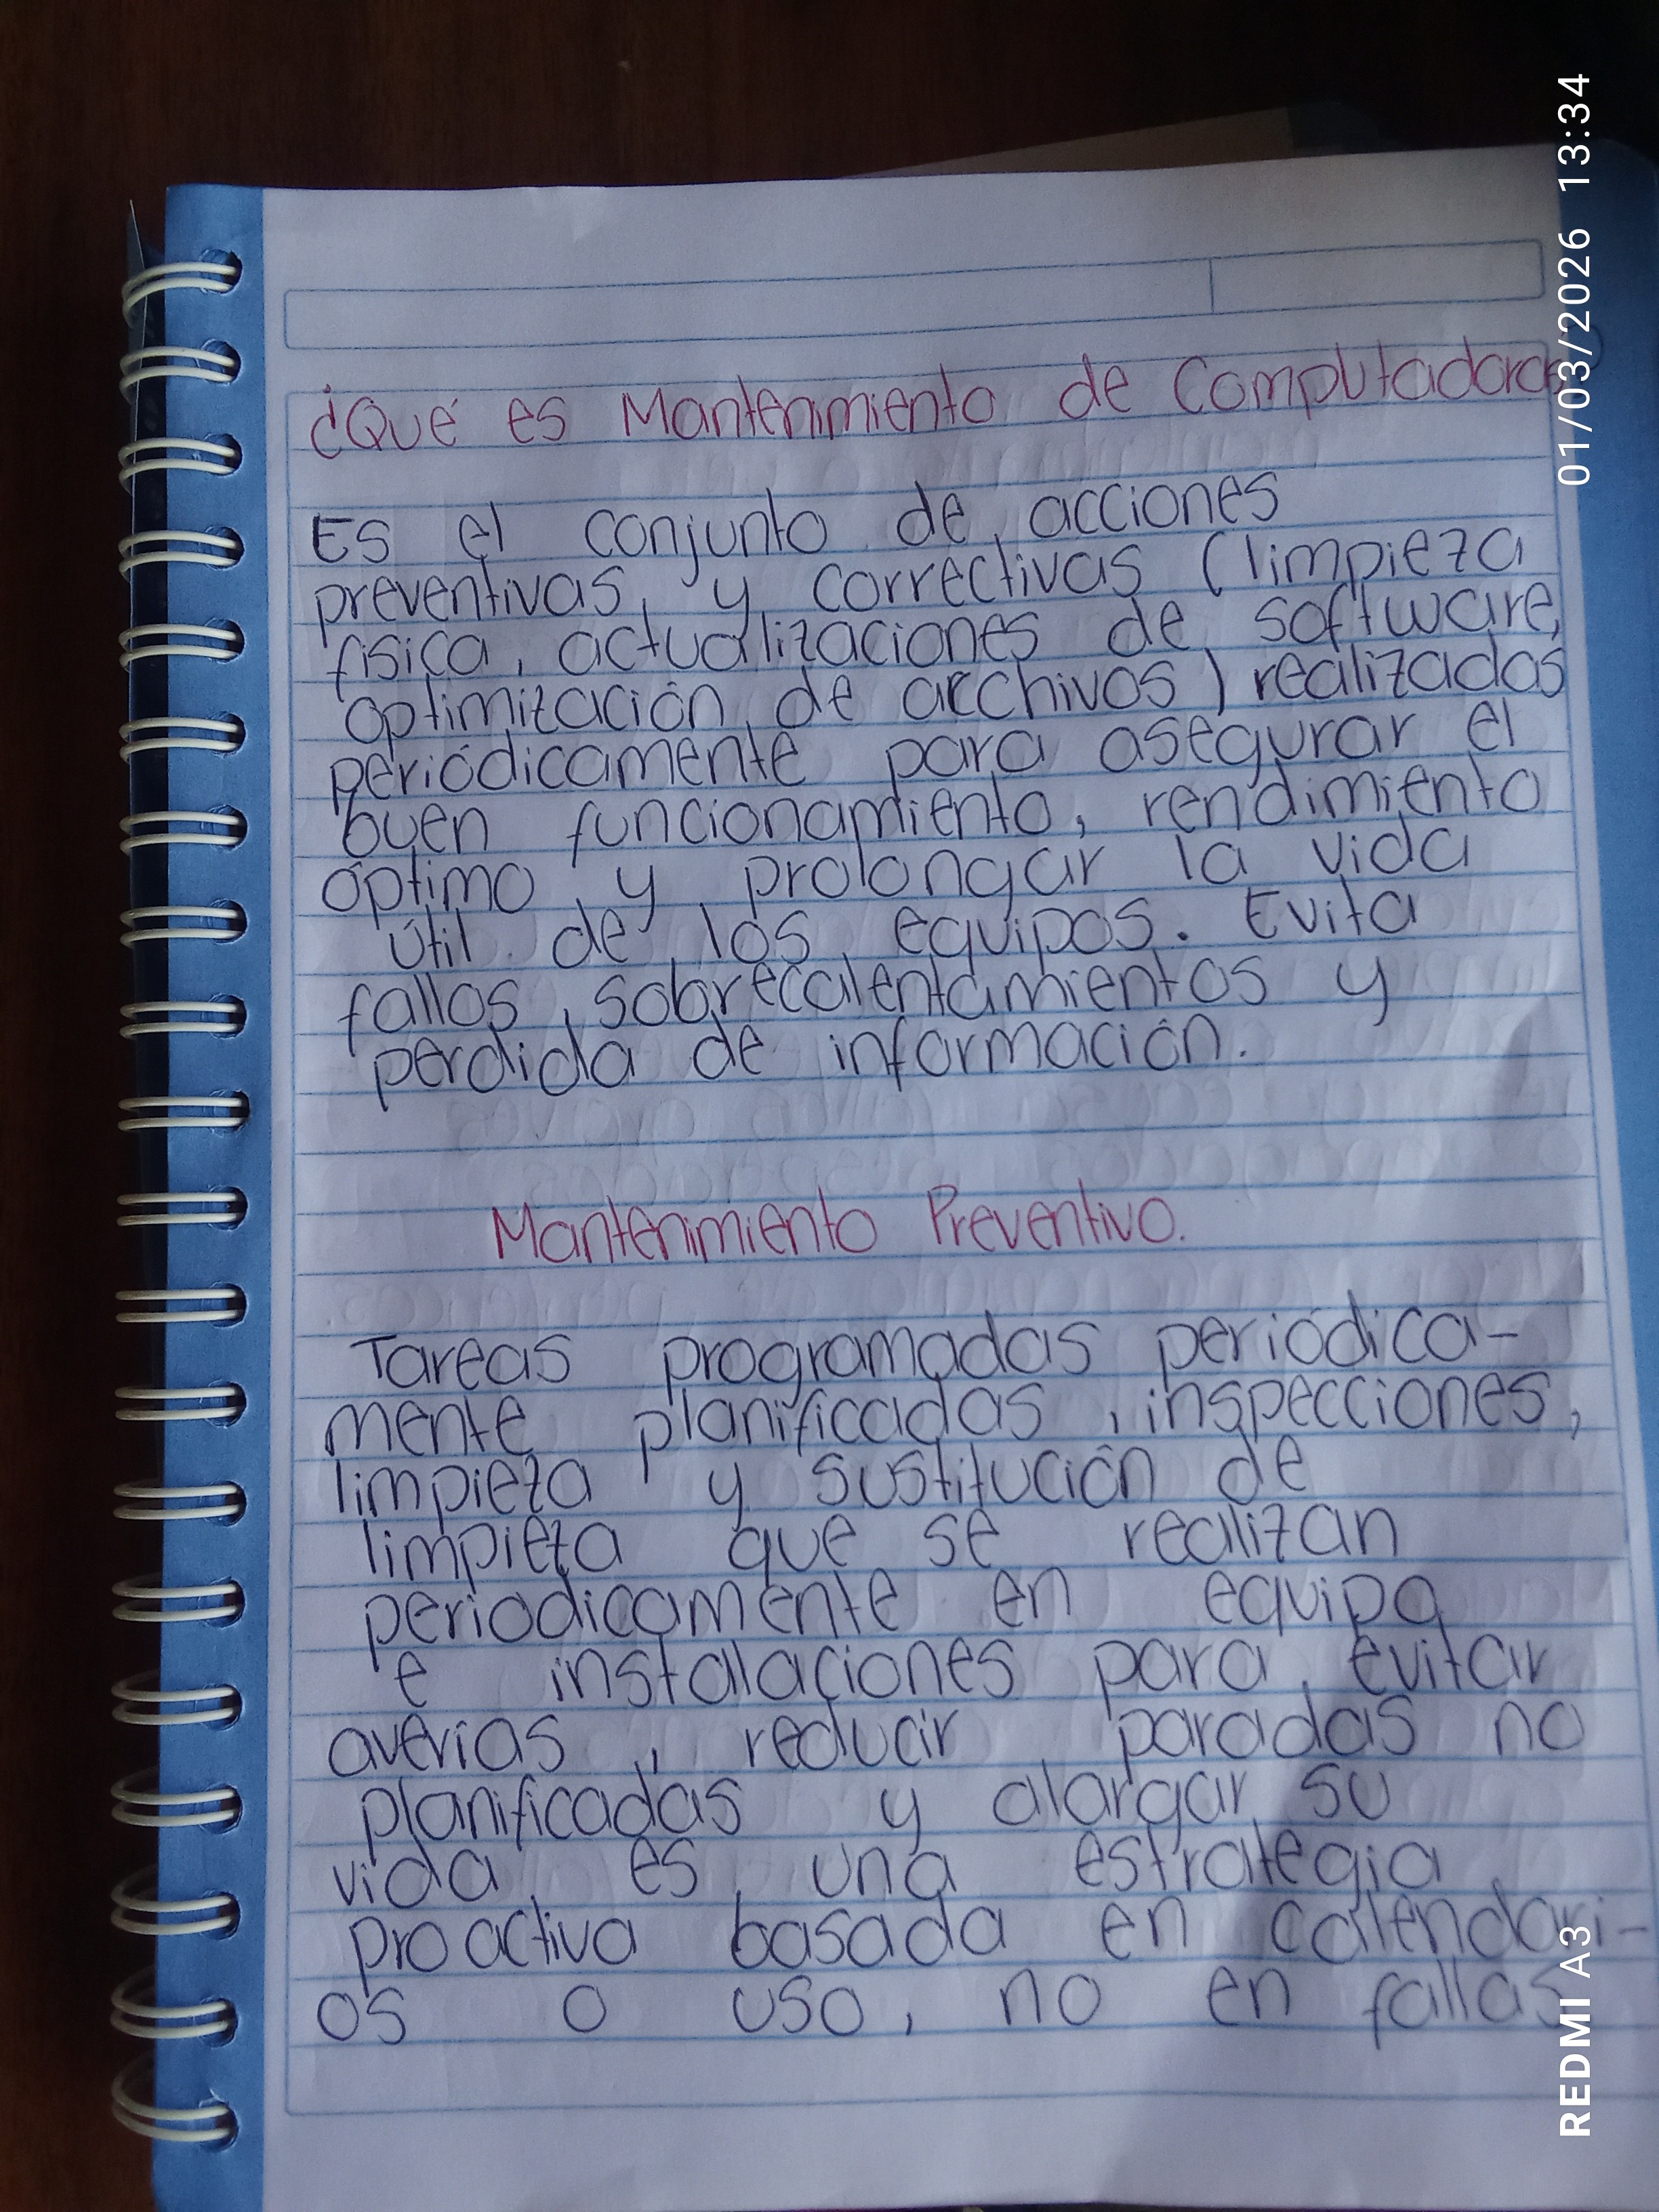 ¿Qué es Mantenimiento de Computadoras?
Es el conjunto de acciones
preventivas y correctivas (limpieza
física, actualizaciones de software,
optimización de archivos) realizadas
periódicamente para asegurar el
buen funcionamiento, rendimiento
óptimo y prolongar la vida
útil de los equipos. Evita
fallos, sobrecalentamientos y
perdida de información.
Mantenimiento Preventivo.
Tareas programadas periódica-
mente planificadas, inspecciones,
limpieza y sustitución de
limpieza que se realizan
periodicamente en equipo
e instalaciones para evitar
averias, reducir paradas no
planificadas y alargar su
vida es una estrategia
proactiva basada en calendari-
os o uso, no en fallas
01/03/2026 13:34
REDMI A3